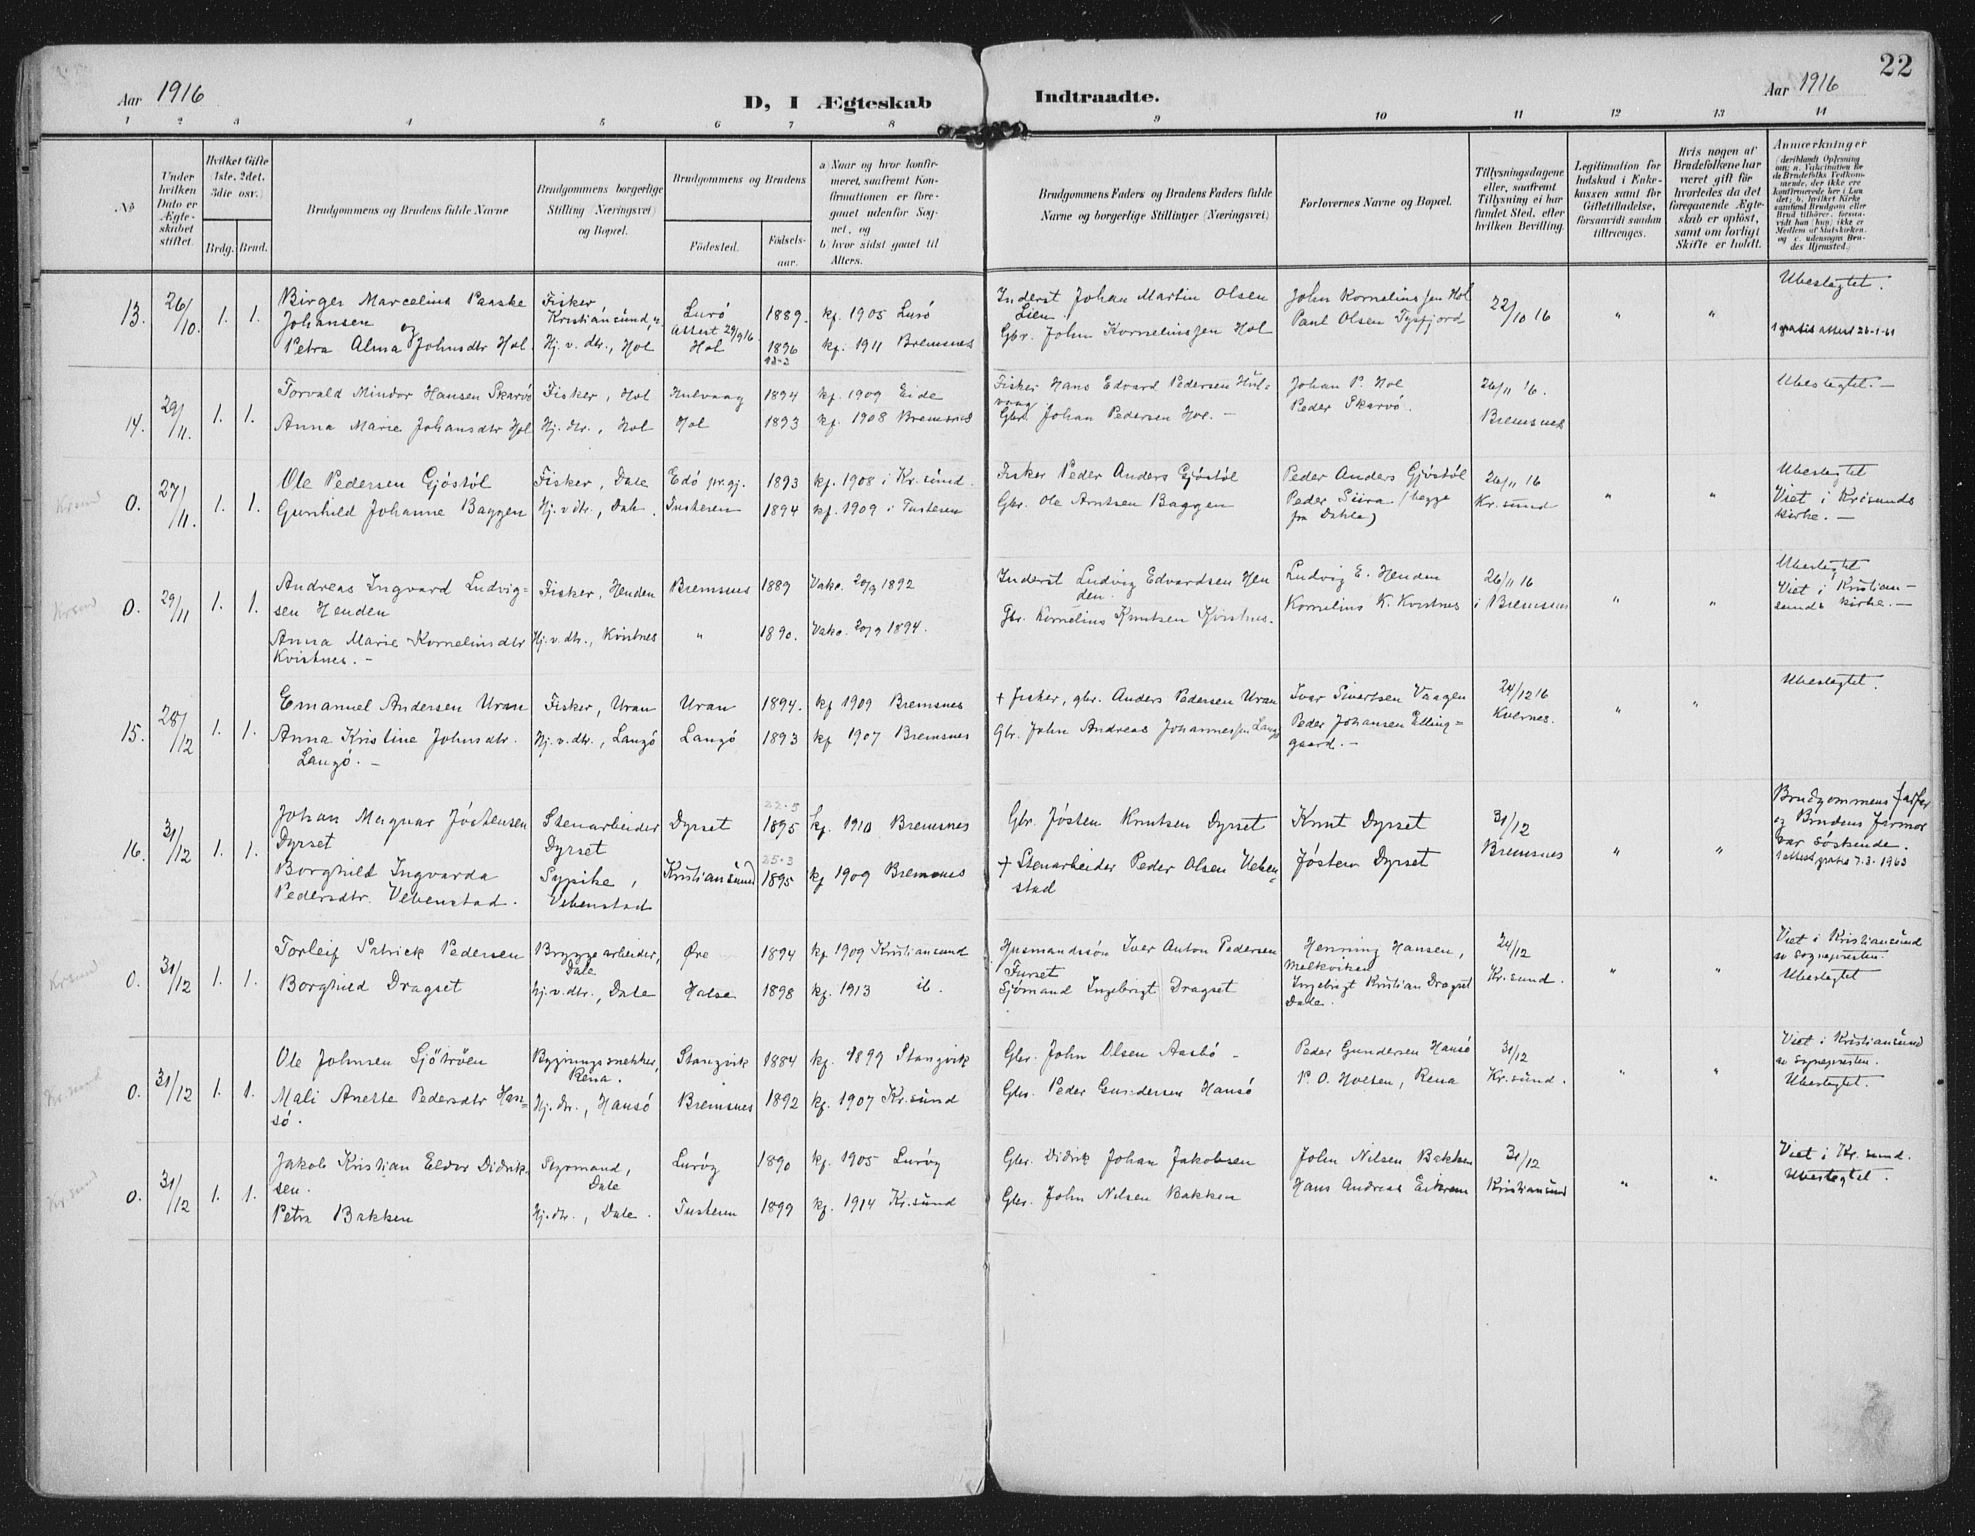 22
Aar 1916
D, I Ægteskab Indtraadte.
Aar 1916
1 2 3 4 5 6 7 8 9 10 11 12 13 14
No
Under hvilken Dato er Ægteskabet stiftet.
Hvilket Gifte (1ste, 2det, 3die osv.)
Brdg. Brud.
Brudgommens og Brudens fulde Navne
Brudgommens borgerlige Stilling (Næringsvei) og Bopæl.
Brudgommens og Brudens
Fødested. Fødselsaar.
a) Naar og hvor konfirmeret, saafremt Konfirmationen er foregaaet udenfor Sognet, og
b) hvor sidst gaaet til Alters.
Brudgommens Faders og Brudens Faders fulde Navne og borgerlige Stillinger (Næringsvei)
Forlovernes Navne og Bopæl.
Tillysningsdagene eller, saafremt Tillysning ei har fundet Sted, efter hvilken Bevilling.
Legitimation for Indskud i Enkekassen samt for Giftetilladelse, forsaavidt saadan tiltrænges.
Hvis nogen af Brudefolkene har været gift før hvorledes da det foregaaende Ægteskab er opløst, samt om lovligt Skifte er holdt.
Anmærkninger
13. 26/10. 1. 1.
Birger Marcelius Paaske Johansen og
Fisker, Kristiansund,
Lurö 1889. kf. 1905 Lurö
Attest 29/9 16
Inderst Johan Martin Olsen Lien
John Korneliussen Hol
Paul Olsen Tysfjord
22/10 16 " "
Ubeslegtet.
Petra Alma Johnsdtr Hol.
Hj. v. dtr., Hol Hol 1896 kf. 1911 Bremsnes
Gbr. John Korneliussen Hol
14. 29/11. 1. 1.
Torvald Mindor Hansen Skarvö
Fisker, Hol Hulvaag 1894 kf. 1909 Eide
Fisker Hans Edvard Pedersen Hulvaag.
Johan P. Hol
Peder Skarvö.
26/11 16. Bremsnes
Ubeslegtet. –
Anna Marie Johansdtr Hol
Hj. dtr., Hol Hol 1893 kf. 1908 Bremsnes
Gbr. Johan Pedersen Hol. –
Krsund
0. 27/11. 1. 1.
Ole Pedersen Gjöstöl
Fisker, Dale Edö pr.gj. 1893 kf. 1908 i Kr.sund.
Fisker Peder Anders Gjöstöl
Peder Anders Gjöstöl
26/11 16 Kr.sund " "
Ubeslegtet
Viet i Krisunds kirke. –
Gunhild Johanne Baggen
Hj. v dtr., Dale. Tusteren 1894 kf. 1909 i Tusteren
Gbr. Ole Arntsen Baggen
(begge fra Dahle)
Krsund
0. 29/11 1. 1.
Andreas Ingvard Ludvigsen Henden
Fisker, Henden Bremsnes 1889 Vakc. 20/9 1892
Inderst Ludvig Edvardsen Henden.
Ludvig E. Henden
Kornelius K. Kvistnes
26/11 16 i Bremsnes " "
Ubeslegtet
Viet i Kristiansunds kirke. –
Anna Marie Korneliusdtr Kvistnes. –
Hj. v dtr., Kvistnes " 1890. Vakc. 20/9 1894.
Gbr. Kornelius Knutsen Kvistnes.
15. 28/12 1. 1.
Emanuel Andersen Uran
Fisker, Uran Uran 1894. kf 1909 Bremsnes
+ Fisker, gbr. Anders Pedersen Uran
Ivar Sivertsen Vaagen
Peder Johansen Ellinggaard. –
24/12 16 Kvernes. " "
Ubeslegtet.
Anna Kristine Johnsdtr. Langö. –
Hj. v. dtr., Langö Langö 1893 kf 1907 Bremsnes
Gbr. John Andreas Johannessen Langö
16. 31/12 1. 1.
Johan Magnar Jöstensen Dyrset
Stenarbeider Dyrset Dyrset 22.5 1895 kf. 1910 Bremsnes
Gbr. Jösten Knutsen Dyrset
Knut Dyrset
Jösten Dyrset
31/12 Bremsnes " "
Brudgommens farfar og Brudens farmor var söskende.
1 attest gratis 7.3.1963
Borghild Ingvarda Pedersdtr. Vebenstad.
Sypike, Vebenstad Kristiansund 25.3 1895 kf 1909 Bremsnes
+ Stenarbeider Peder Olsen Vebenstad
Krsund
0. 31/12 1. 1.
Torleif Patrick Pedersen
Bryggearbeider, Dale Øre 1894 kf 1909 Kristiansund
Husmandssön Iver Anton Pedersen Furset
Henning Hansen, Melkviken
Ingebrigt Kristian Dragset Dale.
24/12 Kr.sund. " "
Viet i Kristiansund av Sognepresten.
Ubeslegtet
Borghild Dragset
Hj. v. dtr., Dale Halsa 1898 kf. 1913 ib.
Sjömand Ingebrigt Dragset
Kr.sund
0. 31/12 1. 1.
Ole Johnsen Sjötröen
Bygningssnekker, Rena. Stangvik 1884 kf. 1899 Stangvik
Gbr. John Olsen Aasbö –
Peder Gundersen Hansö
P. O. Holsen, Rena
31/12 Kr.sund. " "
Viet i Kristiansund av Sognepresten.
Ubeslegtet.
Mali Anette Pedersdtr Hansö.
Hj. dtr., Hansö Bremsnes 1892 kf. 1907 Kr.sund
Gbr. Peder Gundersen Hansö
Kr.sund
0. 31/12 1. 1.
Jakob Kristian Eldor Didriksen.
Styrmand, Dale Luröy 1890 kf. 1905 Luröy
Gbr. Didrik Johan Jakobsen
John Nilsen Bakken
Hans Andreas Eikrem
31/12 Kristiansund " "
Viet i Kr.sund.
Ubeslegtet.
Petra Bakken
Hj. dtr., Dale. Tusteren 1899 kf. 1914 Kr.sund
Gbr. John Nilsen Bakken